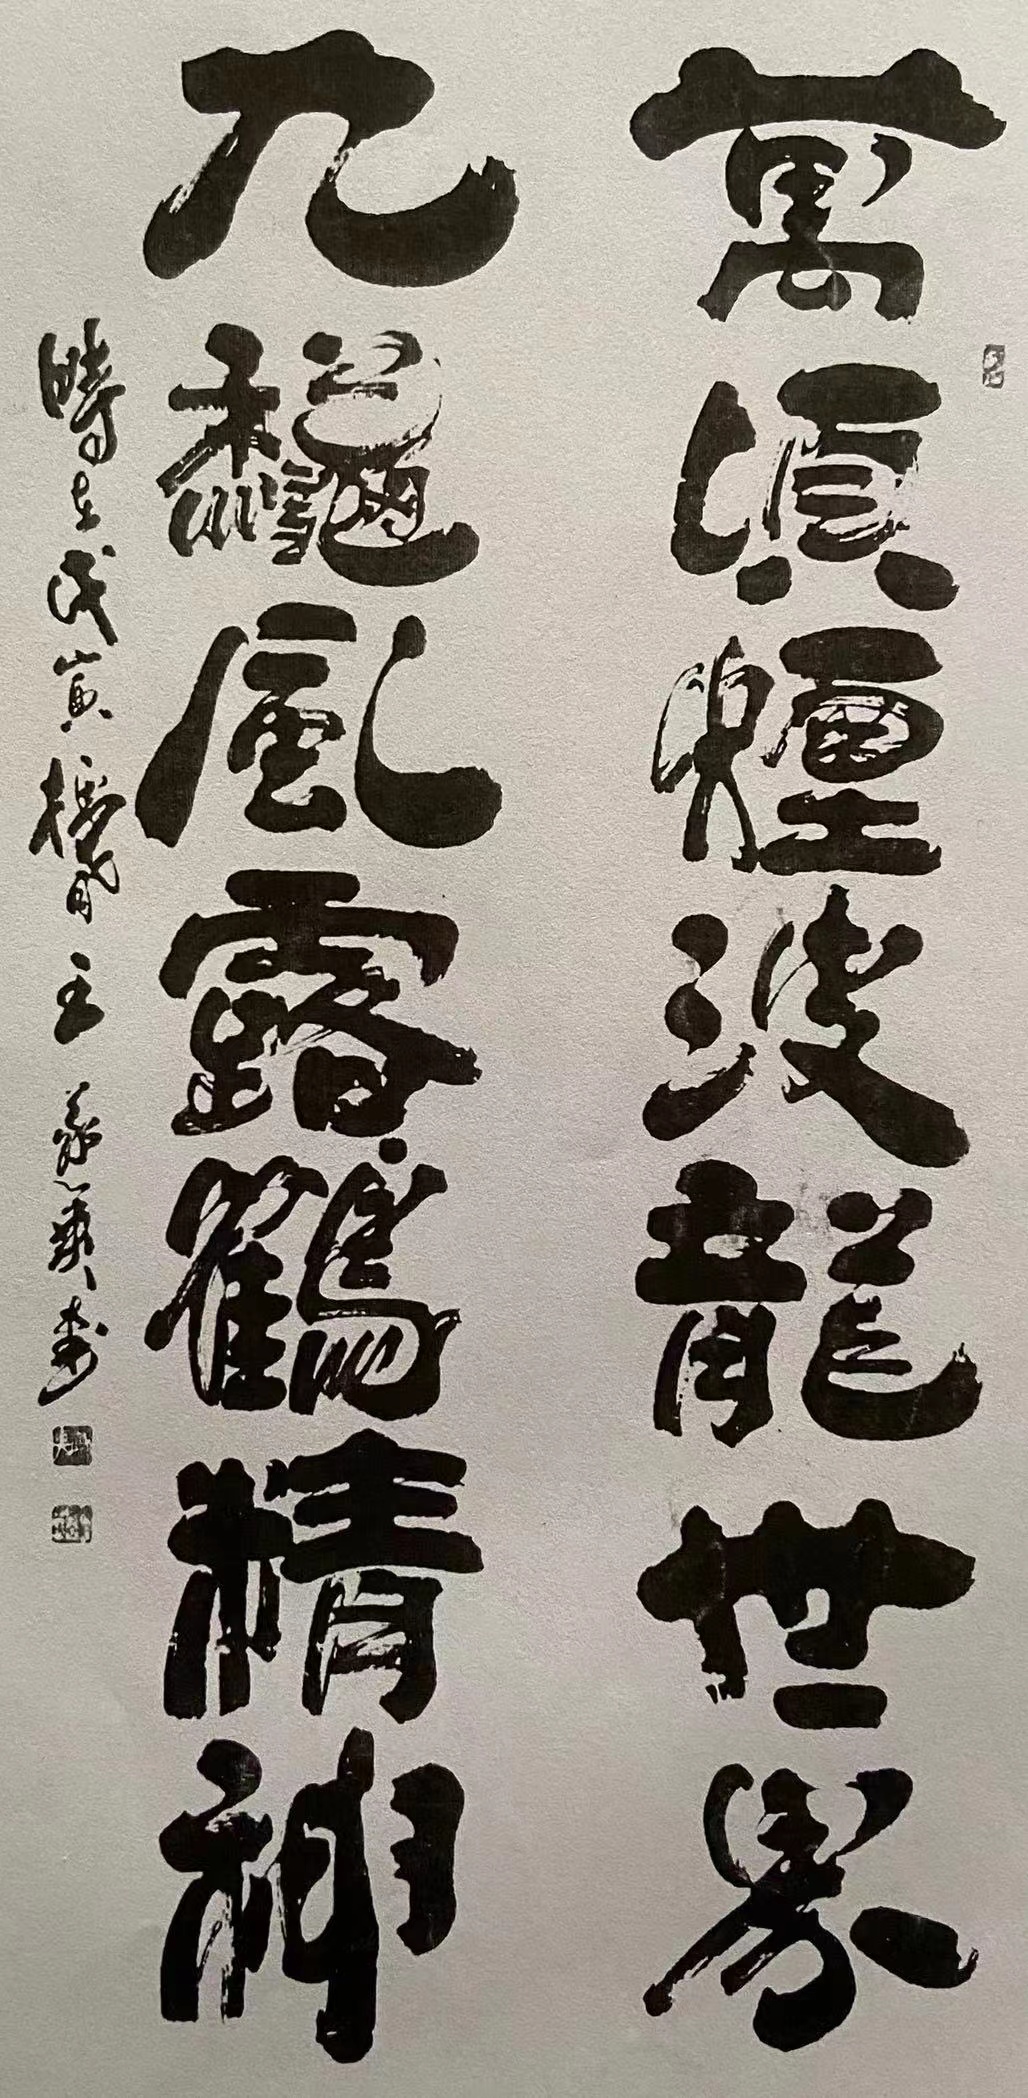 萬頃煙波龍世界
九龝風露鶴精神
時在戊寅